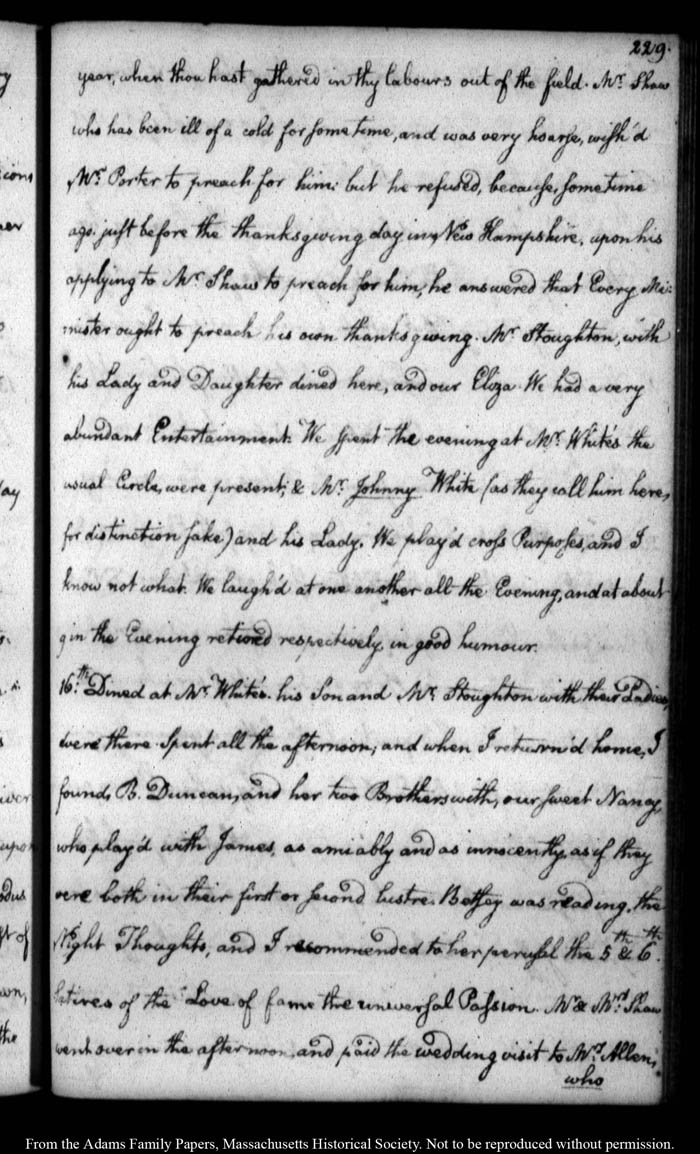 229.
year, when thou hast gathered in thy labours out of the field. Mr. Shaw
who has been ill of a cold for some time, and was very hoarse, wish'd
Mr. Porter to preach for him: but he refused, because, sometime
ago. just before the thanksgiving day in New Hampshire, upon his
applying to Mr. Shaw to preach for him, he answered that Every Mi-
nister ought to preach his own thanksgiving. Mr. Stoughton, with
his Lady and Daughter dined here, and our Eliza. We had a very
abundant Entertainment. We spent the evening at Mr. White's the
usual Circle, were present; & Mr. Johnny White (as they call him here,
for distinction sake) and his Lady. We play'd cross Purposes, and I
know not what. We laugh'd at one another all the Evening, and at about
9 in the Evening retired respectively in good humour.
16th. Dined at Mr. White's. his Son and Mr. Stoughton with their Ladies,
were there. Spent all the afternoon; and when I return'd home, I
found, B. Duncan, and her two Brothers with, our sweet Nancy,
who play'd with James, as amiably and as innocently, as if they
were both in their first or second lustre. Betsey was reading, the
Night Thoughts, and I recommended to her perusal the 5th & 6th.
Satires of the Love of fame the universal Passion. Mr. & Mrs. Shaw
went over in the afternoon and paid the wedding visit to Mr. Allen,
who
From the Adams Family Papers, Massachusetts Historical Society. Not to be reproduced without permission.